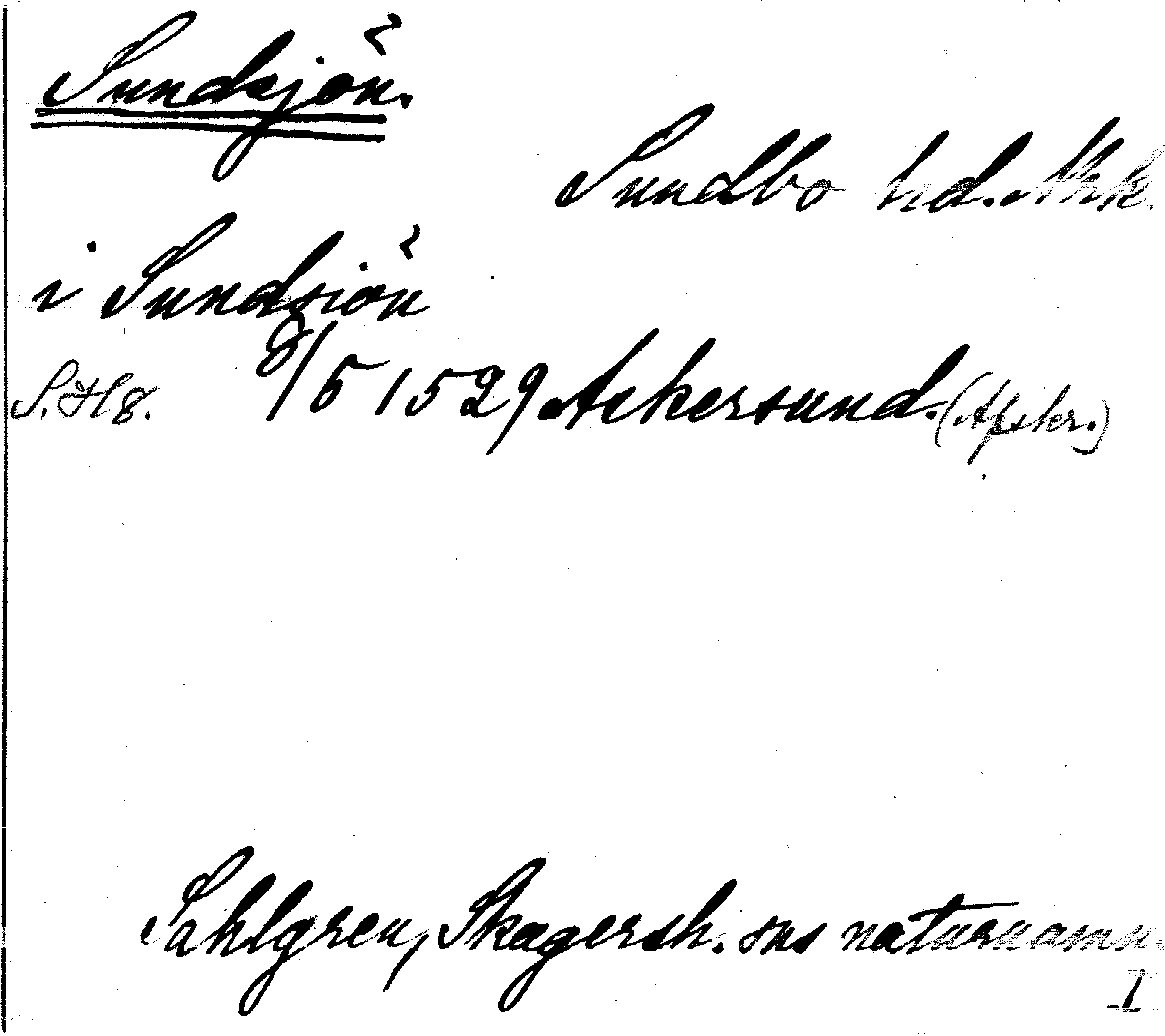 Sundsjön.
Sundbo hd. Nke.
i Sundsiön
S. H 8. 8/5 1529 Askersund. (Afskr.)
Sahlgren, Skagersh. sns naturnamn.
I